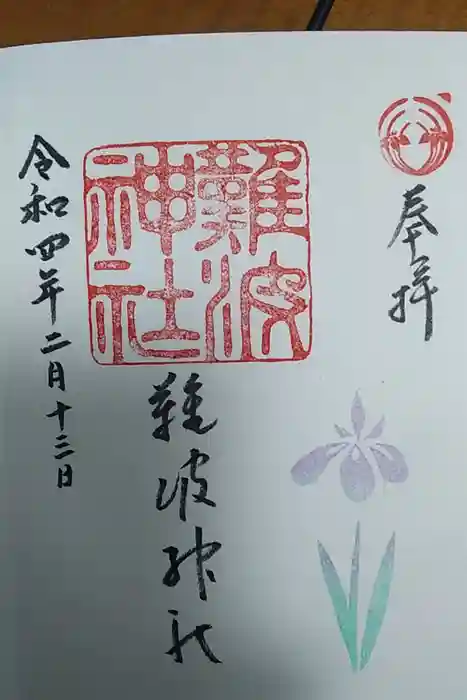 奉拝
難波
神社
難波神社
令和四年二月十三日